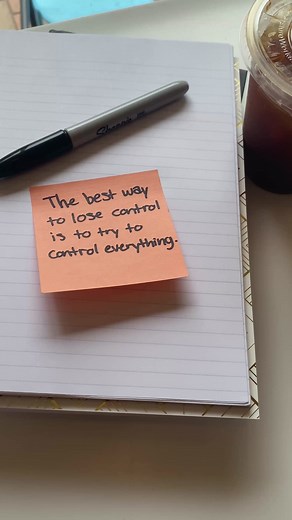 Sharpie
The best way
to lose control
is to try to
control everything.